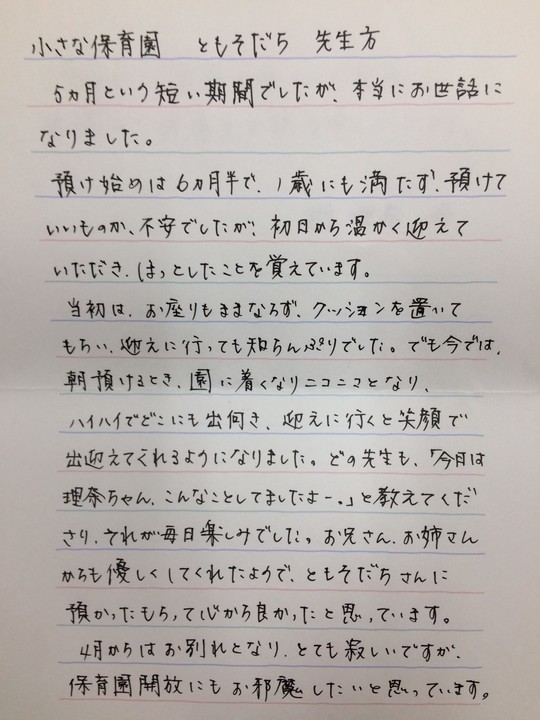 小さな保育園　ともそだち　先生方
５ヵ月という短い期間でしたが、本当にお世話に
なりました。
預け始めは６ヵ月半で、１歳にも満たず、預けて
いいものか、不安でしたが、初日から温かく迎えて
いただき、ほっとしたことを覚えています。
当初は、お座りもままならず、クッションを置いて
もらい、迎えに行っても知らんぷりでした。でも今では、
朝預けるとき、園に着くなりニコニコとなり、
ハイハイでどこにも出向き、迎えに行くと笑顔で
出迎えてくれるようになりました。どの先生も、「今日は
理奈ちゃん、こんなことしてましたよー。」と教えてくだ
さり、それが毎日楽しみでした。お兄さん、お姉さん
からも優しくしてくれたようで、ともそだちさんに
預かったもらって心から良かったと思っています。
４月からはお別れとなり、とても寂しいですが、
保育園開放にもお邪魔したいと思っています。